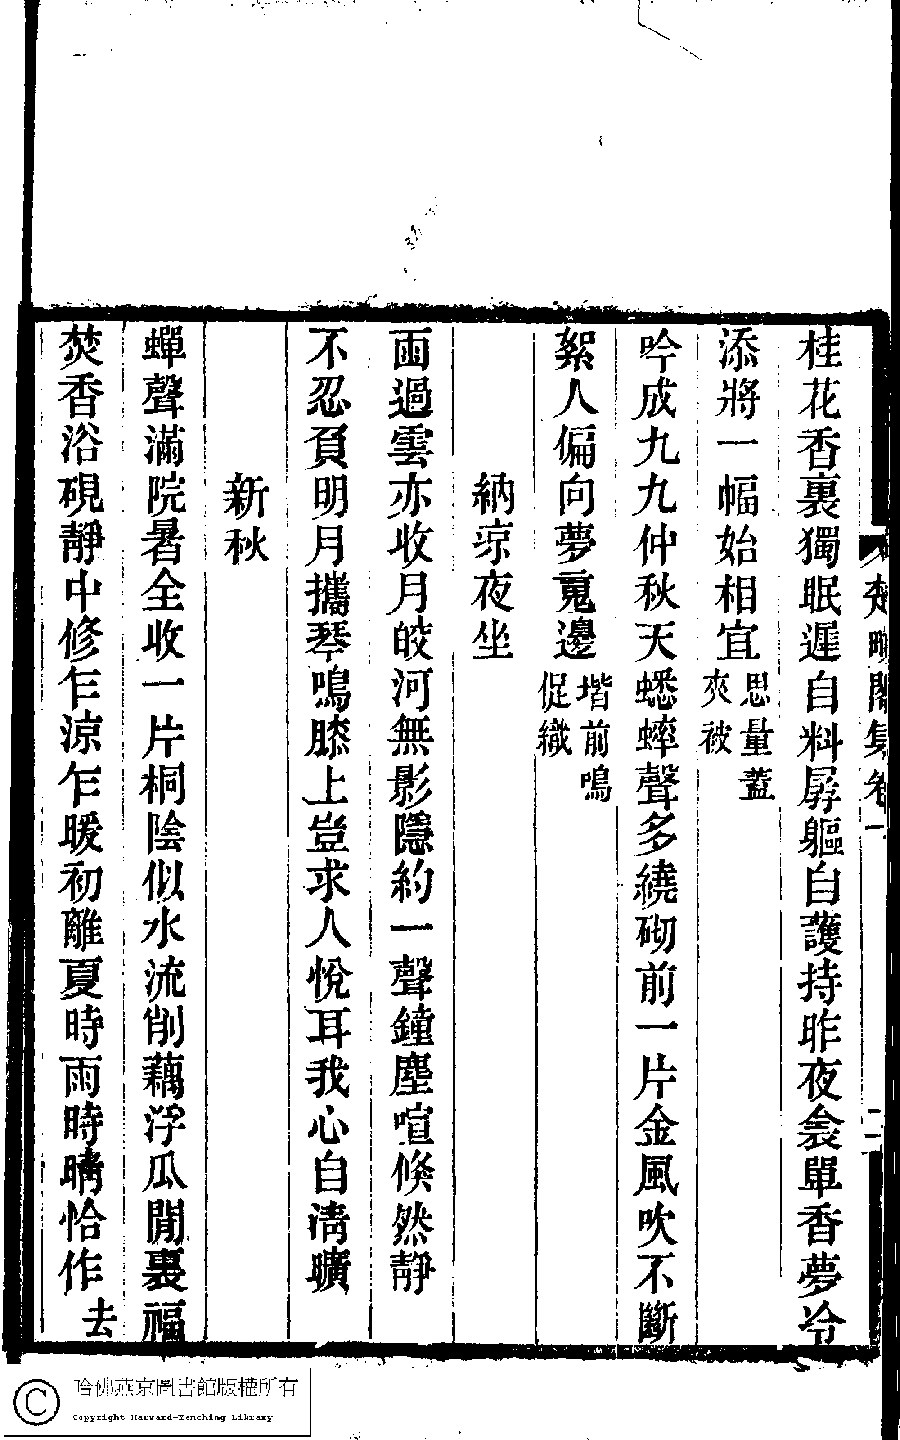 桂花香裏獨眠遲自料孱軀自護持昨夜衾單香夢冷
添將一幅始相宜思量蓋夾被
吟成九九仲秋天蟋蟀聲多繞砌前一片金風吹不斷
絮人偏向夢寬邊堦前鳴促織
納凉夜坐
雨過雲亦收月皎河無影隱約一聲鐘塵喧倏然靜
不忍負明月攜琴鳴膝上豈求人悅耳我心自淸曠
新秋
蟬聲滿院暑全收一片桐陰似水流削藕浮瓜閒裏福
焚香浴硯靜中修乍涼乍暖初離夏時雨時晴恰作去
閣集卷一
二
哈佛燕京圖書館版權所有
Copyright Harvard-Yenching Library